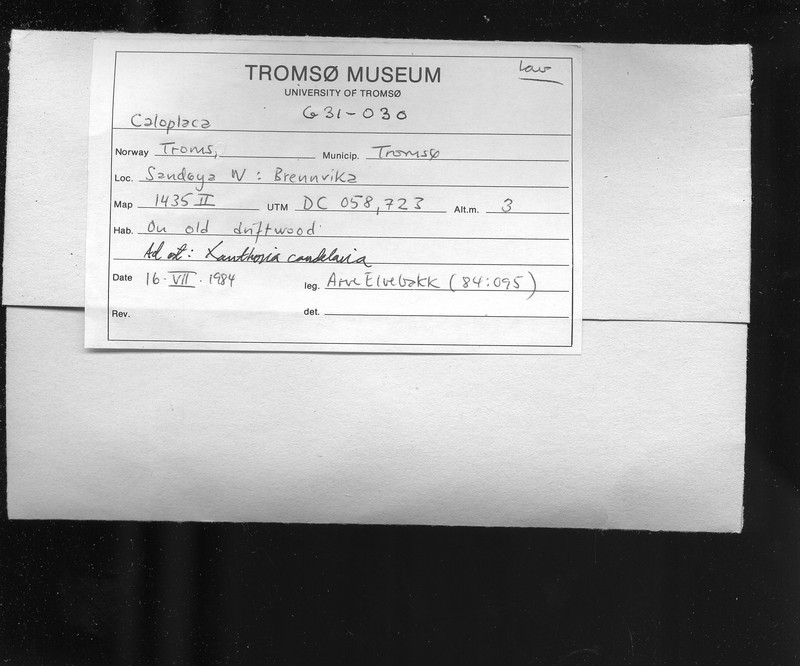 Lav
TROMSØ MUSEUM
UNIVERSITY OF TROMSØ
G31-030
Caloplaca
Norway Troms, Municip. Tromsø
Loc. Sandøya N : Brennvika
Map 1435 II UTM DC 058,723 Alt.m. 3
Hab. On old driftwood
Ad est: Xanthoria candelaria
Date 16.VII.1984 leg. Arve Elvebakk (84:095)
Rev. det.